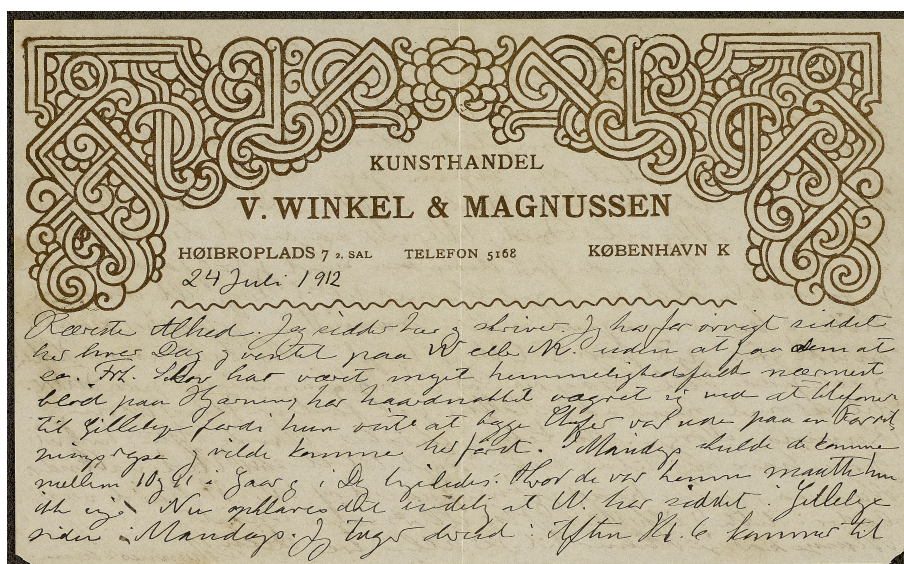 KUNSTHANDEL
V. WINKEL & MAGNUSSEN
HØIBROPLADS 7 2. SAL TELEFON 5168 KØBENHAVN K
24 Juli 1912
Kæreste Alhed. Jeg sidder her og skriver. Jeg har for øvrigt siddet
her hver Dag og ventet paa W eller M. uden at faa dem at
se. Frk. har været meget hemmelighedsfuld nærmest
blød paa Hjernen, har haardnakket vægret sig ved at telefonere
til Gilleleje fordi hun vidste at begge Chefer var ude paa en Forret
ningsrejse og vilde komme her først. Mandags skulde de komme
mellem 10 og 11 i Gaar og i Dag ligeledes. Hvor de var henne maatte hun
ikke sige. Nu opklares det endelig at W. har siddet i Gilleleje
siden i Mandags. Jeg tager derud i Aften Kl. 6 kommer til